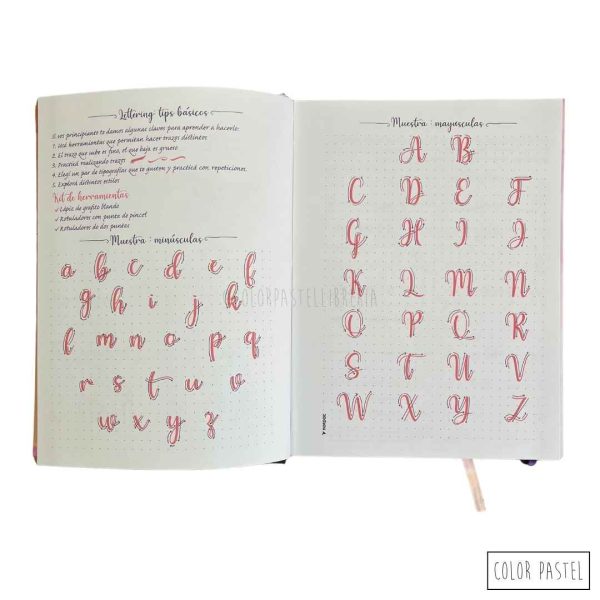 Lettering: tips básicos
Si sos principiante te damos algunas claves para aprender a hacerlo:
1. Usá herramientas que permitan hacer trazos distintos
2. El trazo que sube es fino, el que baja es grueso
3. Practicá realizando trazos
4. Elegí un par de tipografías que te gusten y practicá con repeticiones.
5. Explorá distintos estilos
Kit de herramientas
✓ Lápiz de grafito blando
✓ Rotuladores con punta de pincel
✓ Rotuladores de dos puntas
Muestra: minúsculas
a b c d e f
g h i j k
l m n o p q
r s t u v
w x y z
Muestra: mayúsculas
A B
C D E F
G H I J
K L M N
O P Q R
S T U V
W X Y Z
COLORPASTELLIBRERIA
COLOR PASTEL